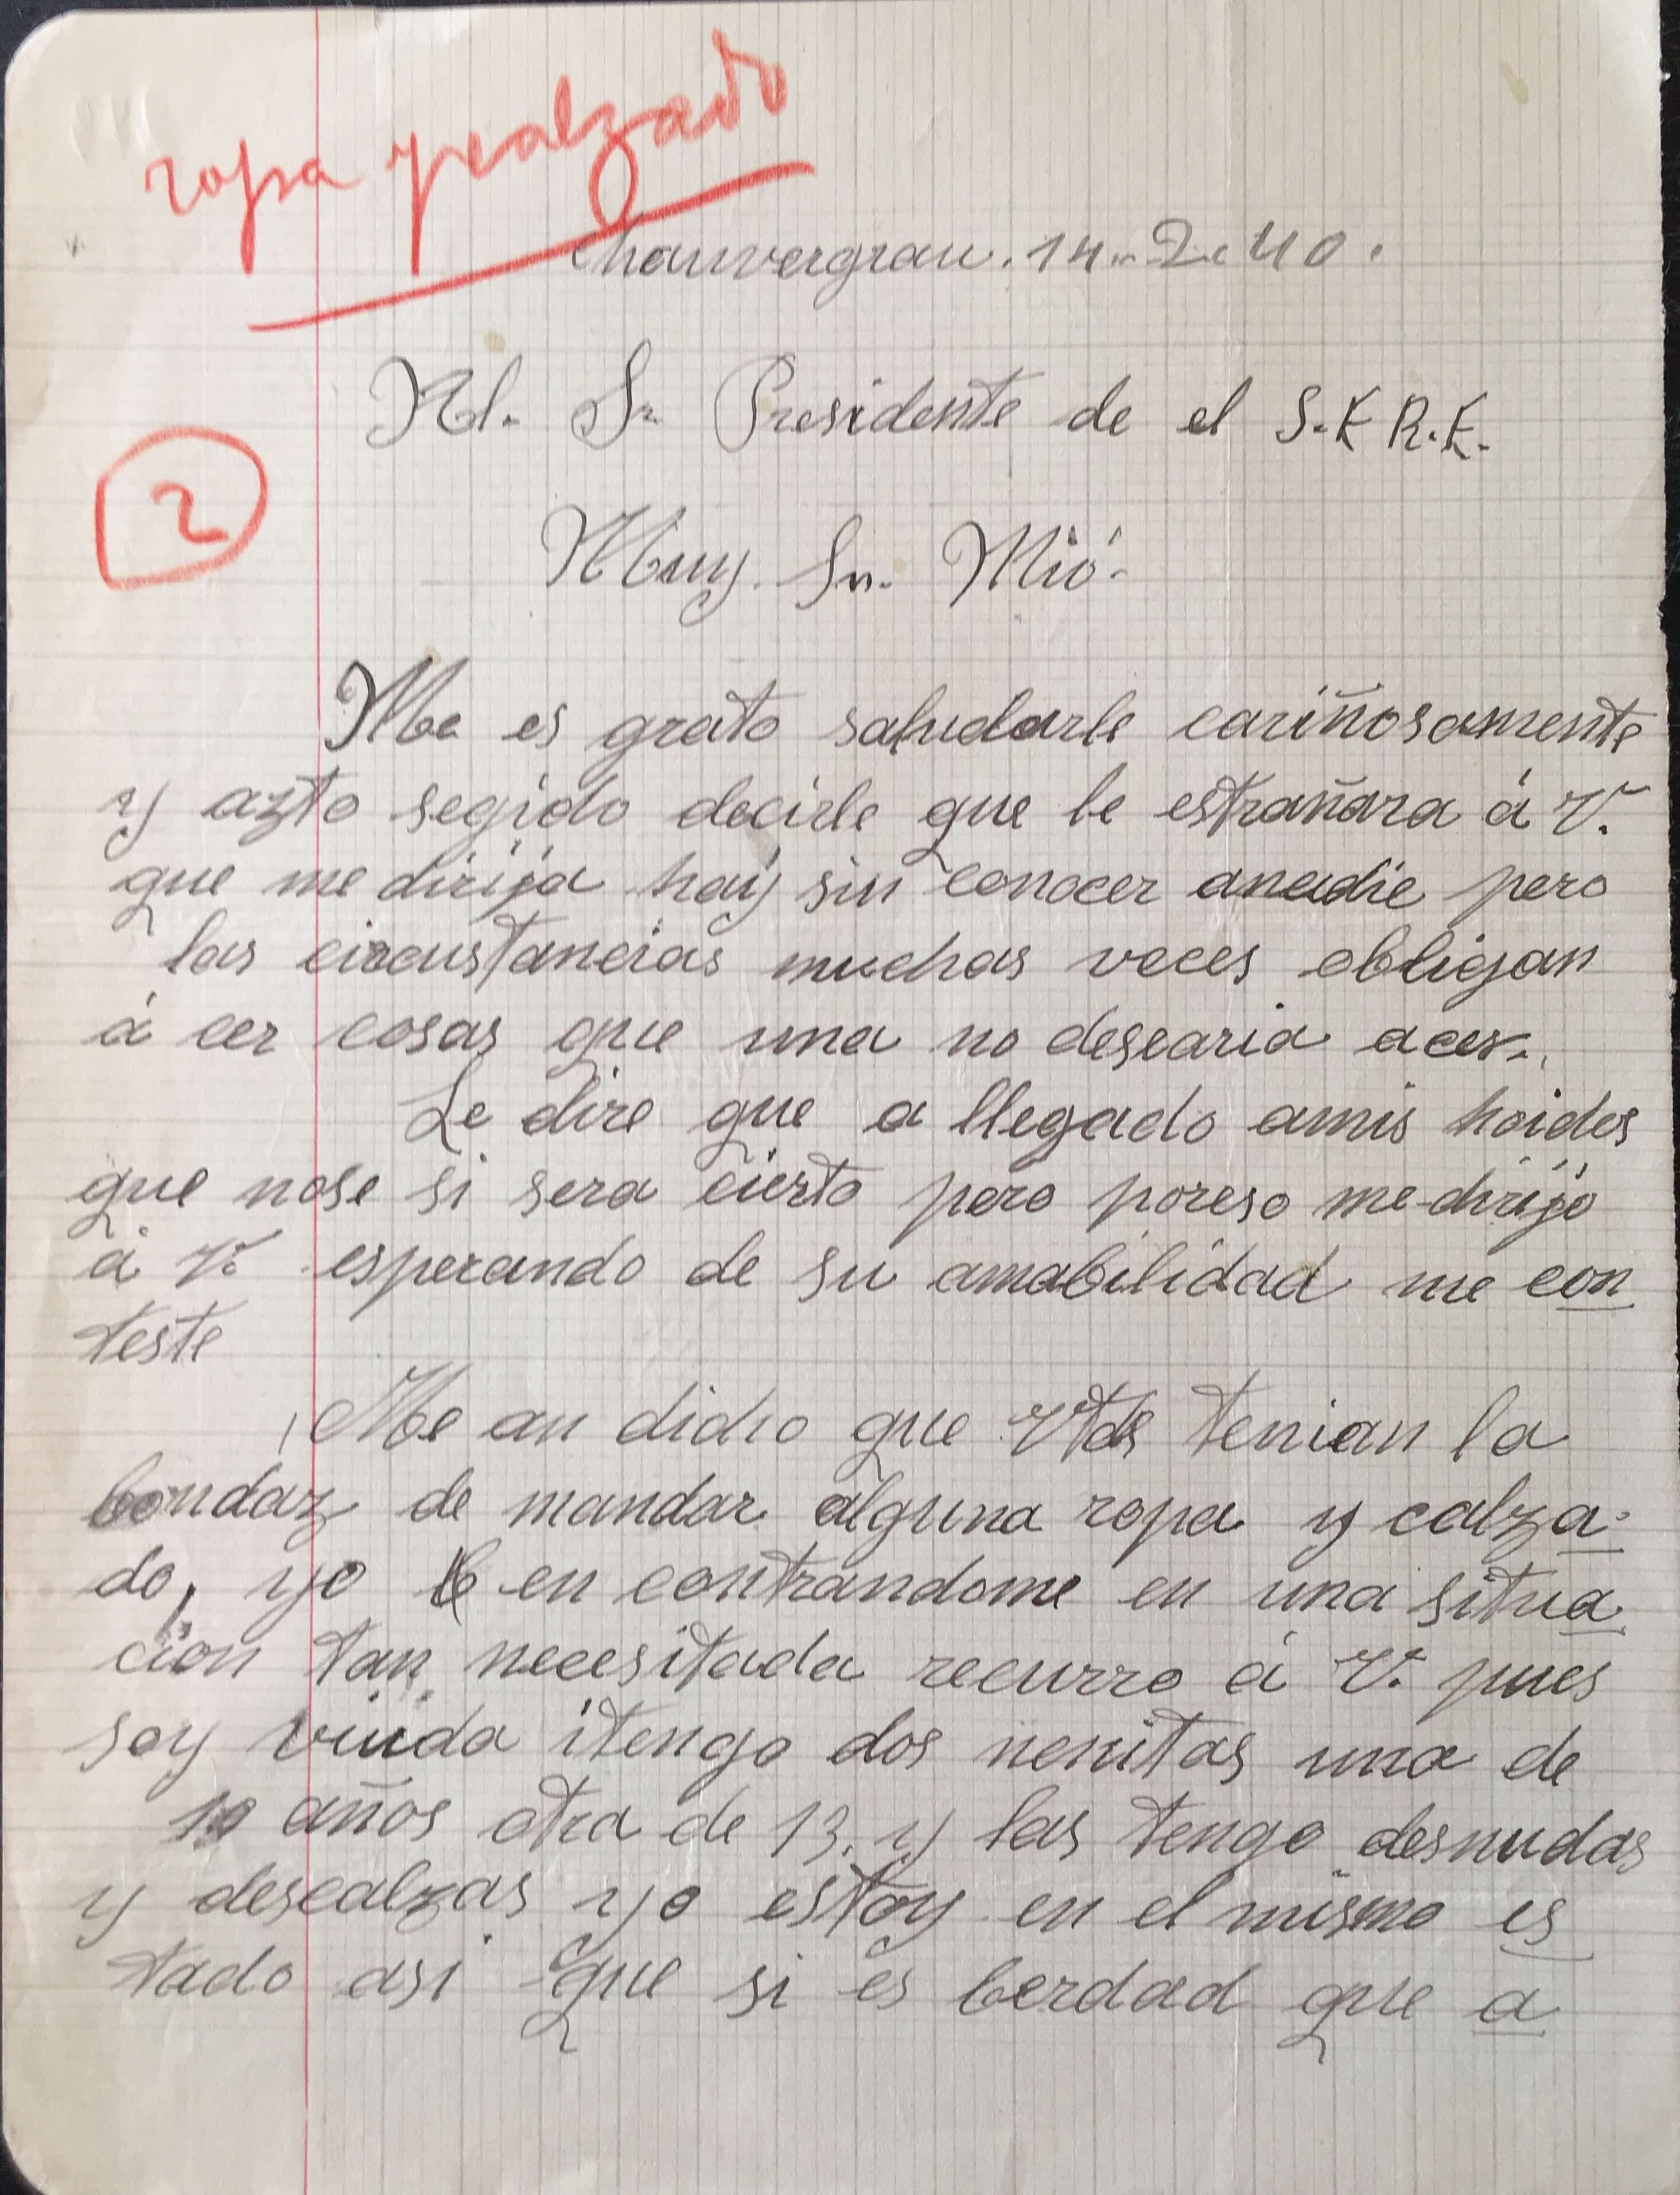 ropa y calzado
Chauvergrau. 14-2-40.
Al. Sr Presidente de el S.E R.E.
2
Muy. Sr. Mió.
Me es grato saludarle cariñosamente
y azto segido decirle que le estrañara á V.
que me dirija hay sin conocer anadie pero
las circustancias muchas veces obligan
á cer cosas que una no desearia acer.
Le dire que a llegado amis hoidos
que nose si sera cierto pero poreso me-dirijo
á V. esperando de su amabilidad me con
teste
Me an dicho que Vtds tenian la
bondaz de mandar alguna ropa y calza-
do, yo en contrandome en una situa
cion tan necesitada recurro á V. pues
soy viuda itengo dos nenitas una de
10 años otra de 13. y las tengo desnudas
y descalzas yo estoy en el mismo es
tado asi que si es berdad que a